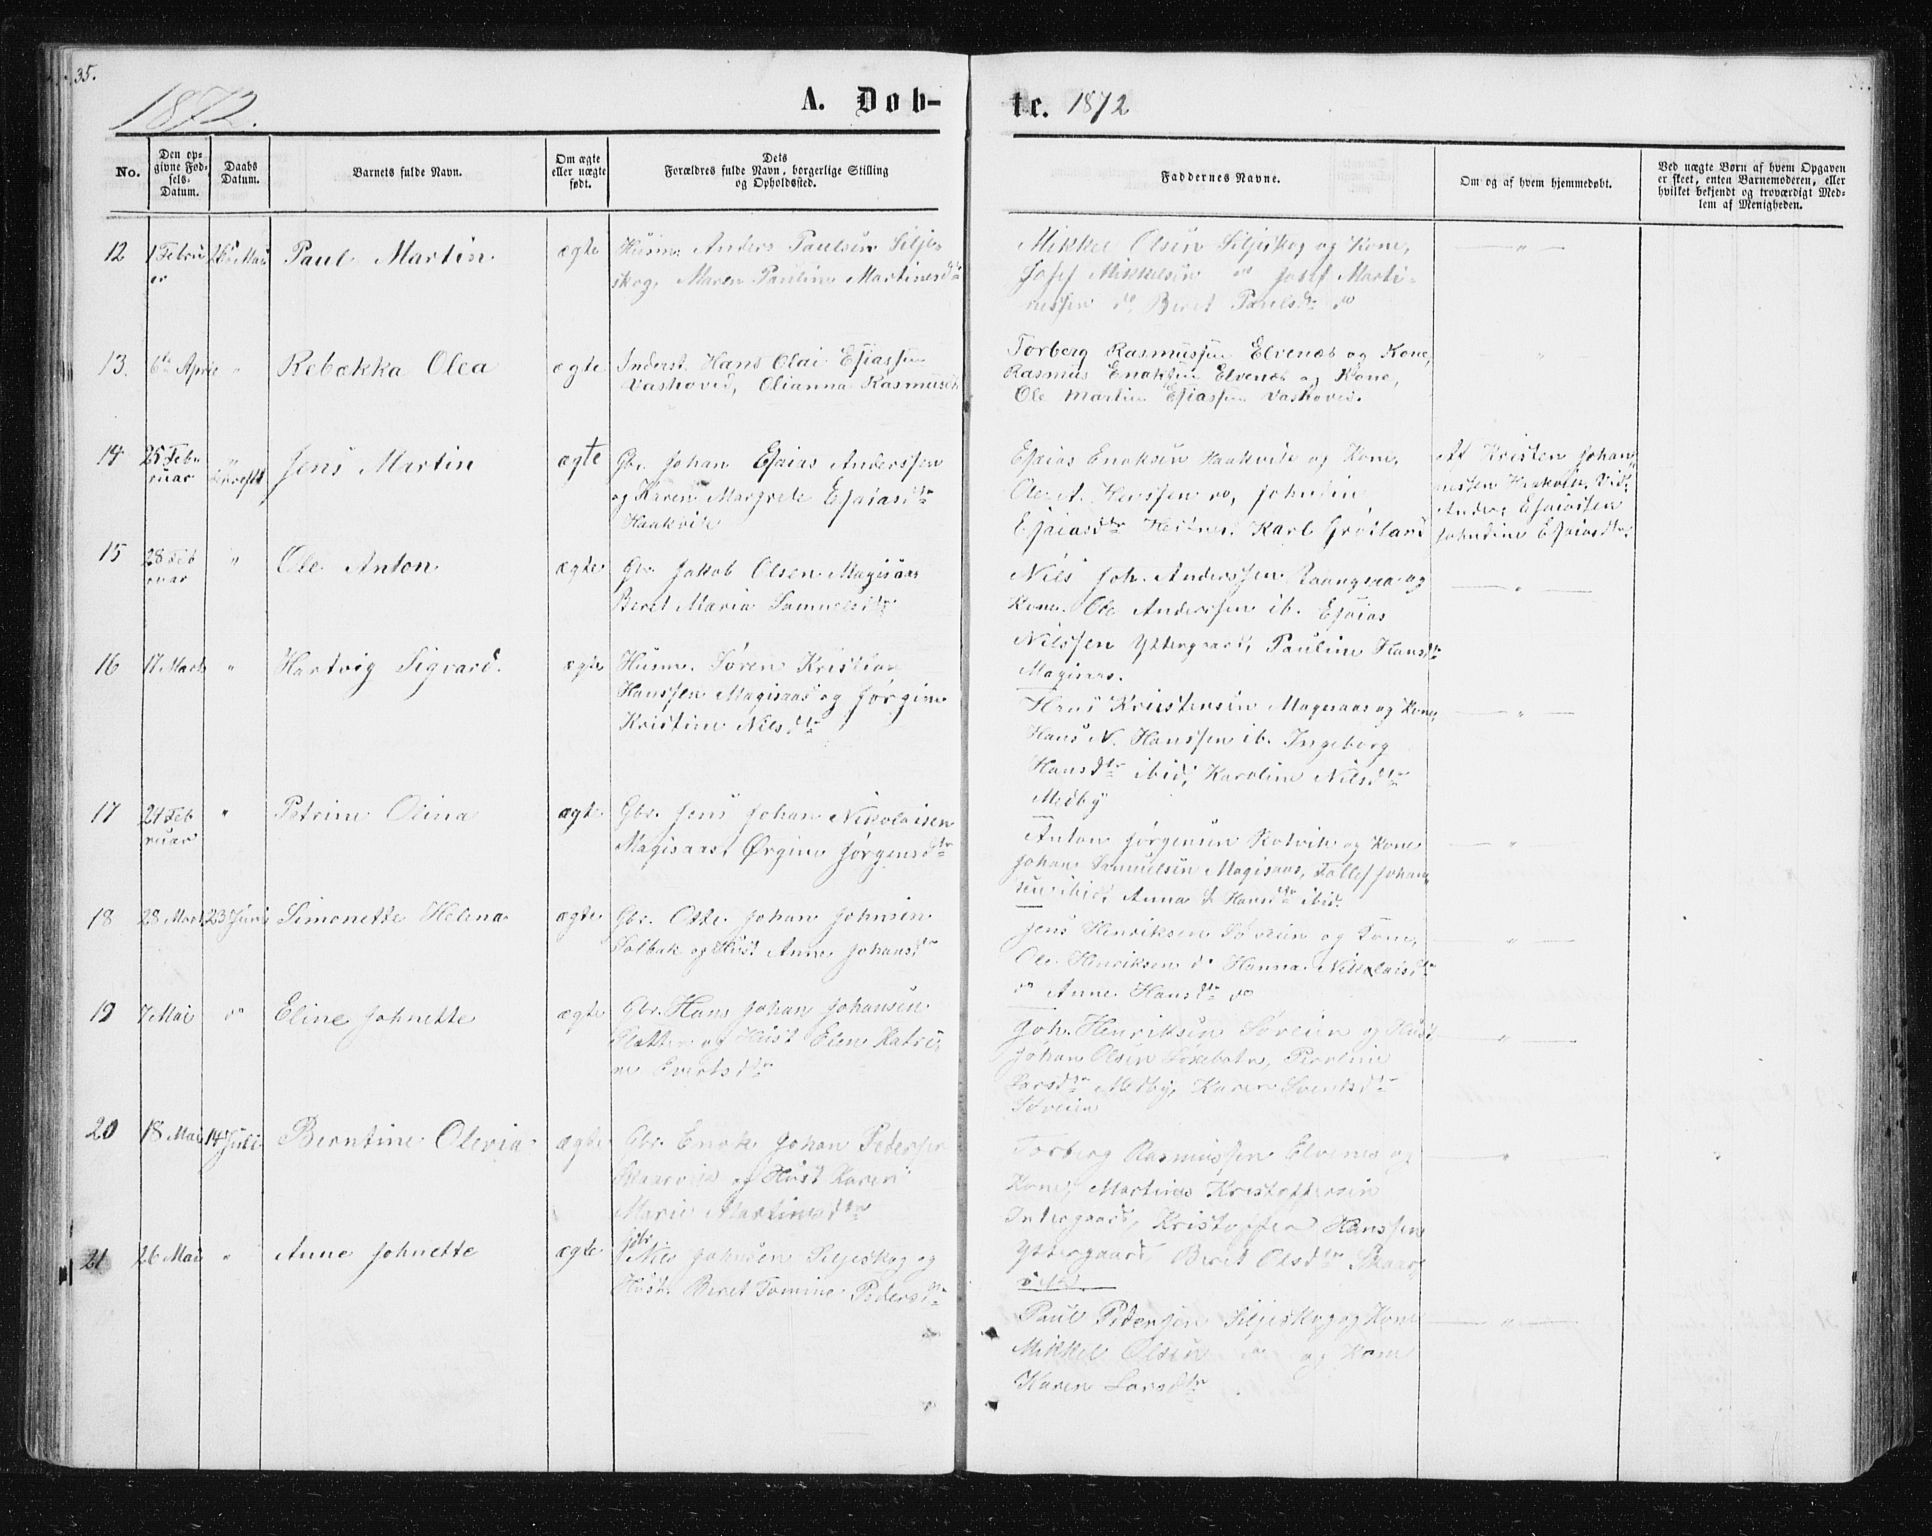 35.
1872.
A. Døb-
te. 1872
No.
Den op-
givne Fød-
sels-
Datum.
Daabs
Datum.
Barnets fulde Navn.
Om ægte
eller uægte
født.
Dets
Forældres fulde Navn, borgerlige Stilling
og Opholdssted.
Faddernes Navne.
Om og af hvem hjemmedøbt.
Ved uægte Børn af hvem Opgaven
er skeet, enten Barnemoderen, eller
hvilket bekjendt og troværdigt Med-
lem af Menigheden.
12 1 Febru
er
Mai Paul Martin ægte Husm. Anders Paulsen Silje-
skog, Maren Pauline Martinesdtr
Mikkel Olsen Siljeskog og Kone,
Josef Mikkelsen do Josef Marti-
nessen do, Beret Paulsdtr do
— " —
13. 6te April " Rebekka Olea ægte Inderst. Hans Olai Esiassen
Vashovid, Olianna Rasmusd
Torberg Rasmussen Elvenes og Kone,
Rasmus Enoksen Elvenes og Kone,
Ole Martin Esiassen Vashovid.
"
14 25 Febr
ruar
" Jens Martin ægte Gbr. Johan Esaias Anderssen
og Karen Margrete Esaiasdtr
Haakvik
Esaias Enoksen Haakvik og Kone,
Ole A. do, Johndin
Esaiasdtr Karl
Af Kristen Johan
nessen Haakvik. Vid,
Anders Esaiassen
Johndine Esaiasdtr.
15 28 Feb
ruar
" Ole Anton ægte Gbr. Jakob Olsen Magisaas
Beret Maria Samuelsdtr
Nils Joh. Anderssen og
Kone. Ole Anderssen ib. Esaias
Nilssen Yttergaard, Pauline Hansdtr
Magisaas.
— " —
16 17 Marts " Hartvig Sigvard. ægte Husm. Søren Kristian
Hanssen Magisaas og Jørgine
Kristine Nilsdtr
Hans Kristensen Magisaas og Kone,
Hans N. Hanssen ib. Ingeborg
Hansdtr ibid, Karoline Nilsdtr
Medby
— " —
17 24 Feb
ruar
" Petrine Olina ægte Gbr. Jens Johan Nikolaisen
Magisaas, Ørgine Jørgensdtr
Anton Jørgensen Rotvik og Kone
Johan Samuelsen Magisaas, Tollef Johan-
sen ibid, Anna Hansdtr ibid.
— " —
18 28 Mart 23 Juni Simonette Helena ægte Gbr. Otte Johan Johnsen
Solbak og Hust Anne Johansd
Jens Henriksen Søveien og Kone,
Ole Henriksen do Hanna Nikolaisdtr
do Anne Hansdtr do
— " —
19 7 Mai do Eline Johnette ægte Gbr. Hans Johan Johansen
og Hust Elen Katri-
ne Evertsdtr
Joh. Henriksen Søveien og Hust
Johan Olsen
Larsdtr Medby, Karen
Søveien
— " —
20 18 Mai 14 Juli Berntine Olevia ægte Gbr. Enok Johan Pedersen
Skaarvik og Hust Karen
Marie Martinesdtr
Torberg Rasmussen Elvenes og
Kone, Martines Kristoffersen
Indergaard, Kristoffer Hanssen
Yttergaard, Beret Olsdtr Skaar-
vik.
— " —
"
21 26 Mai " Anne Johnette ægte Gbr
Nils Johnsen Siljeskog og
Hust. Beret Tomine Pedersdtr
Paul Pedersen Siljeskog og Kone
Mikkel Olsen do og Kone
Karen Larsdtr
— " —